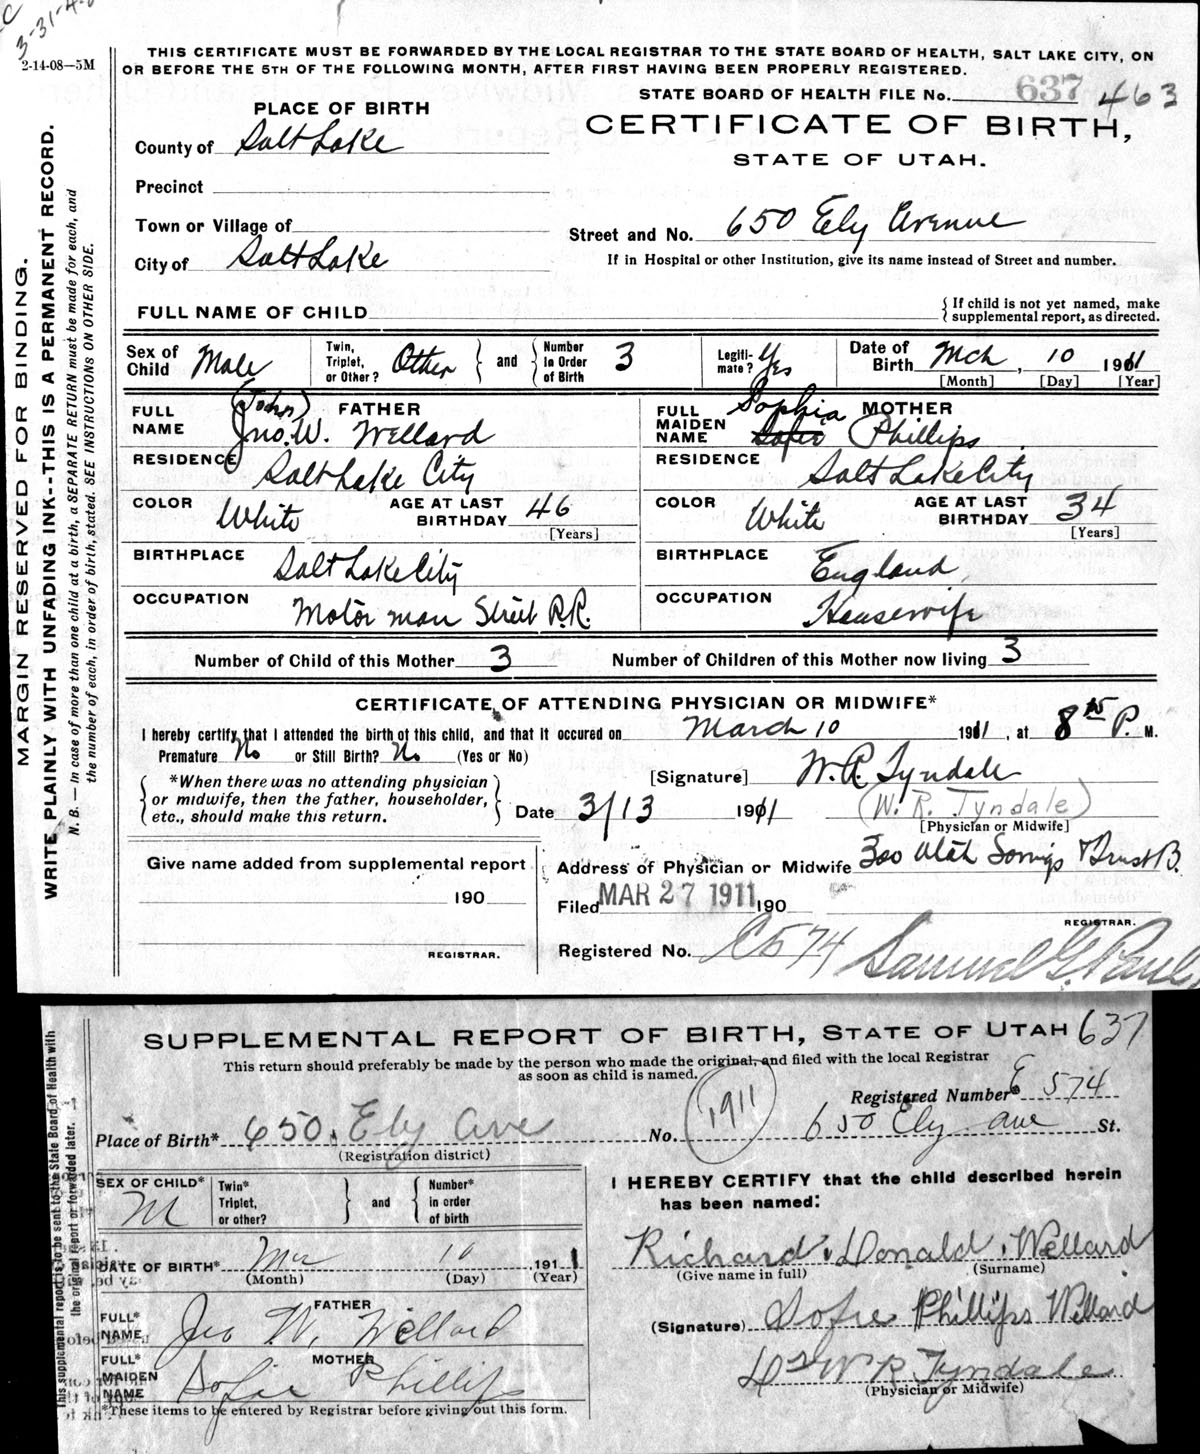 3-31-4
2-14-08—5M
THIS CERTIFICATE MUST BE FORWARDED BY THE LOCAL REGISTRAR TO THE STATE BOARD OF HEALTH, SALT LAKE CITY, ON
OR BEFORE THE 5TH OF THE FOLLOWING MONTH, AFTER FIRST HAVING BEEN PROPERLY REGISTERED.
MARGIN RESERVED FOR BINDING.
WRITE PLAINLY WITH UNFADING INK--THIS IS A PERMANENT RECORD.
N. B. — In case of more than one child at a birth, a SEPARATE RETURN must be made for each, and
the number of each, in order of birth, stated. SEE INSTRUCTIONS ON OTHER SIDE.
STATE BOARD OF HEALTH FILE No. 637 463
PLACE OF BIRTH
CERTIFICATE OF BIRTH,
STATE OF UTAH.
County of Salt Lake
Precinct
Town or Village of
Street and No. 650 Ely Avenue
City of Salt Lake
If in Hospital or other Institution, give its name instead of Street and number.
FULL NAME OF CHILD
{ If child is not yet named, make
supplemental report, as directed.
Sex of Child Male
Twin, Triplet, or Other? Other } and { Number in Order of Birth 3
Legiti- mate? Yes
Date of Birth Mch, 10 1911
[Month] [Day] [Year]
FULL NAME FATHER (John) Jno. W. Wellard
FULL MAIDEN NAME MOTHER Sophia Sofie Phillips
RESIDENCE Salt Lake City
RESIDENCE Salt Lake City
COLOR White AGE AT LAST BIRTHDAY 46 [Years]
COLOR White AGE AT LAST BIRTHDAY 34 [Years]
BIRTHPLACE Salt Lake City
BIRTHPLACE England
OCCUPATION Motor man Street R.R.
OCCUPATION Housewife
Number of Child of this Mother 3 Number of Children of this Mother now living 3
CERTIFICATE OF ATTENDING PHYSICIAN OR MIDWIFE*
I hereby certify that I attended the birth of this child, and that it occured on March 10 1911, at 8 15 P. M.
Premature No or Still Birth? No (Yes or No)
{ *When there was no attending physician
or midwife, then the father, householder,
etc., should make this return. }
[Signature] W. R. Tyndale
Date 3/13 1911 (W. R. Tyndale)
[Physician or Midwife]
Give name added from supplemental report
190
REGISTRAR.
Address of Physician or Midwife 300 Utah Savings & Trust B.
Filed MAR 27 1911 190
REGISTRAR.
Registered No. C574 Samuel G. Paul
SUPPLEMENTAL REPORT OF BIRTH, STATE OF UTAH 637
This return should preferably be made by the person who made the original, and filed with the local Registrar
as soon as child is named.
This supplemental report is to be sent to the State Board of Health with
the original report or forwarded later.
Registered Number* C 574
Place of Birth* 650. Ely Ave No. 1911 650 Ely Ave St.
(Registration district)
SEX OF CHILD* M
Twin* Triplet, or other? } and { Number* in order of birth
I HEREBY CERTIFY that the child described herein
has been named:
DATE OF BIRTH* Mar 10 1911
(Month) (Day) (Year)
Richard Donald Wellard
(Give name in full) (Surname)
FULL* NAME FATHER Jno W. Wellard
(Signature) Sofie Phillips Wellard
FULL* MAIDEN NAME MOTHER Sofie Phillips
Dr W R Tyndale
(Physician or Midwife)
*These items to be entered by Registrar before giving out this form.